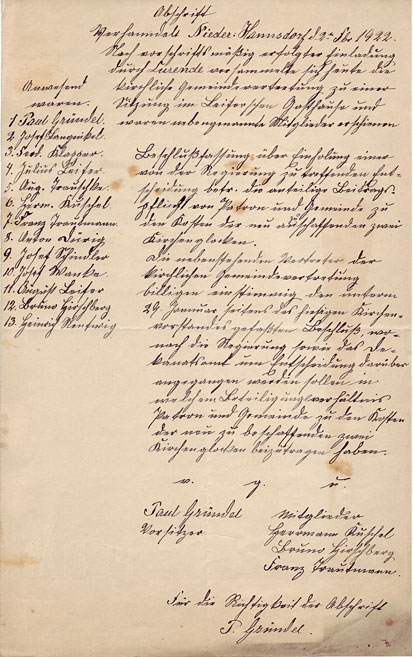 Abschrift
Verhandelt Nieder-Hannsdorf d. 2ten Febr. 1922.
Nach vorschriftsmäßig erfolgter Einladung
durch Kurende versammelte sich heute die
kirchliche Gemeindevertretung zu einer
Sitzung im Leiferschen Gasthause und
waren nebengenannte Mitglieder erschienen
Anwesend
waren.
1 Paul Gründel.
2. Josef
3. Ferd.
4. Julius Leifer
5. Aug.
6. Herm. Kuschel
7. Franz Trautmann.
8. Anton
9. Josef Schindler
10. Josef Wenke.
11. August Leifer
12. Bruno Hirschberg
13. Heinrich Rentwig
Beschlußfassung über Einholung einer
von der Regierung zu treffenden Ent-
scheidung betr. der anteiligen Beitrags
pflicht von Patron und Gemeinde zu
den Kosten der neu anschaffenden zwei
Kirchenglocken.
Die nebenstehenden Vertreter der
kirchlichen Gemeindevertretung
billigen einstimmig den unterm
29 Januar seitens des hiesigen Kirchen-
vorstandes gefaßten Beschluß, wo-
nach die Regierung sowie das De-
kanatsamt um Entscheidung darüber
angegangen werden sollen in
welchem Beteiligungsverhältnis
Patron und Gemeinde zu den Kosten
der neu zu beschaffenden zwei
Kirchenglocken beizutragen haben.
v. g. u.
Paul Gründel
Vorsitzer
Mitglieder
Herrmann Kuschel
Bruno Hirschberg
Franz Trautmann.
Für die Richtigkeit der Abschrift
P. Gründel.